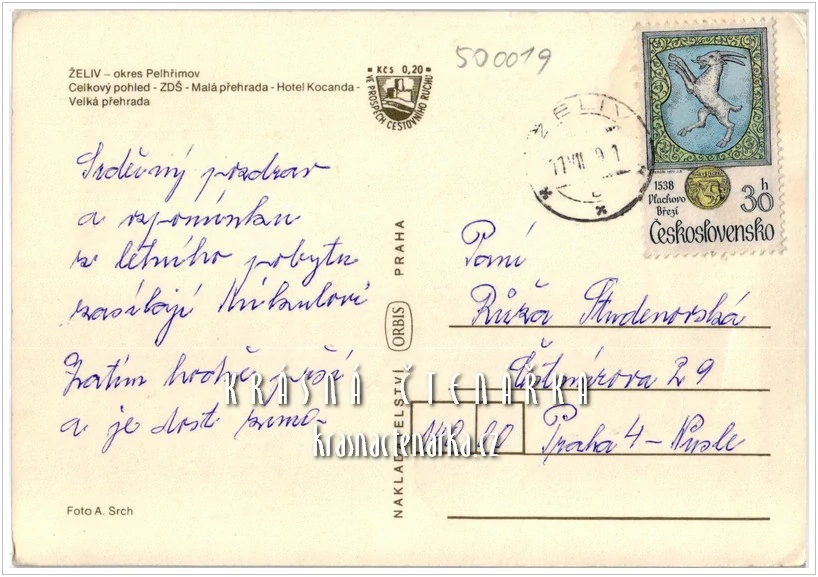 500019
ŽELIV – okres Pelhřimov
Celkový pohled - ZDŠ - Malá přehrada - Hotel Kocanda -
Velká přehrada
Kčs 0,20
VE PROSPĚCH CESTOVNÍHO RUCHU
ŽELIV
1538
Vlachovo
Březí
30 h
Československo
Srdečný pozdrav
a vzpomínku
z letního pobytu
zasílají Mikulovi
Zatím hodně prší
a je dost zima.
NAKLADATELSTVÍ ORBIS PRAHA
Paní
Růža Studenovská
29
140 00 Praha 4 – Nusle
KRÁSNÁ ČTENÁŘKA
krasnactenarka.cz
Foto A. Srch